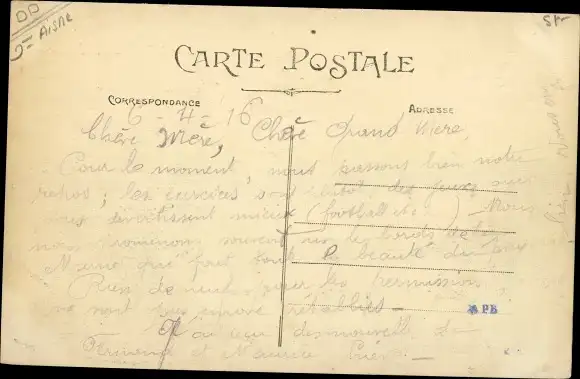 DD
Aisne
CARTE POSTALE
CORRESPONDANCE
ADRESSE
6 - 4 - 16
Chère Mère, Chère Grand Mere
Pour le moment, nous passons bien notre
repos; les exercices sont plutot des jeux qui
nous divertissent mieux (football etc) Nous
nous promenons souvent sur les bords de la
Marne qui fait toute la beauté du pays
Rien de neuf pour les permissions
ne sont pas encore rétablies -
PB
des nouvelles de
et Maurice